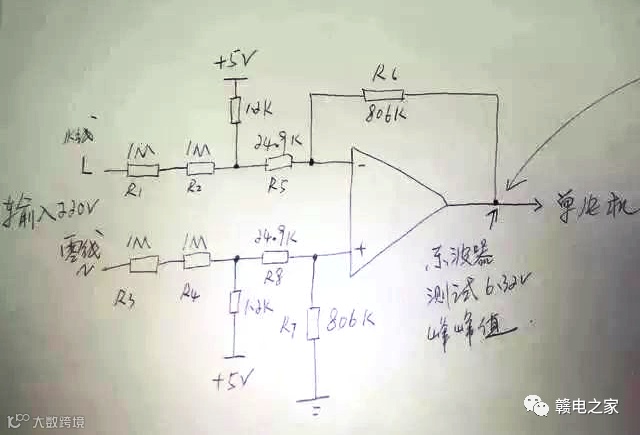 +5V
R6
1.2K
806K
火线
24.9K
1M
1M
L
R1
R2
R5
-
输入220V
单片机
24.9K
零线
1M
1M
+
N
R3
R4
R8
示波器
1.2K
R7
806K
测试6.32V
峰峰值
+5V
大数跨境
赣电之家